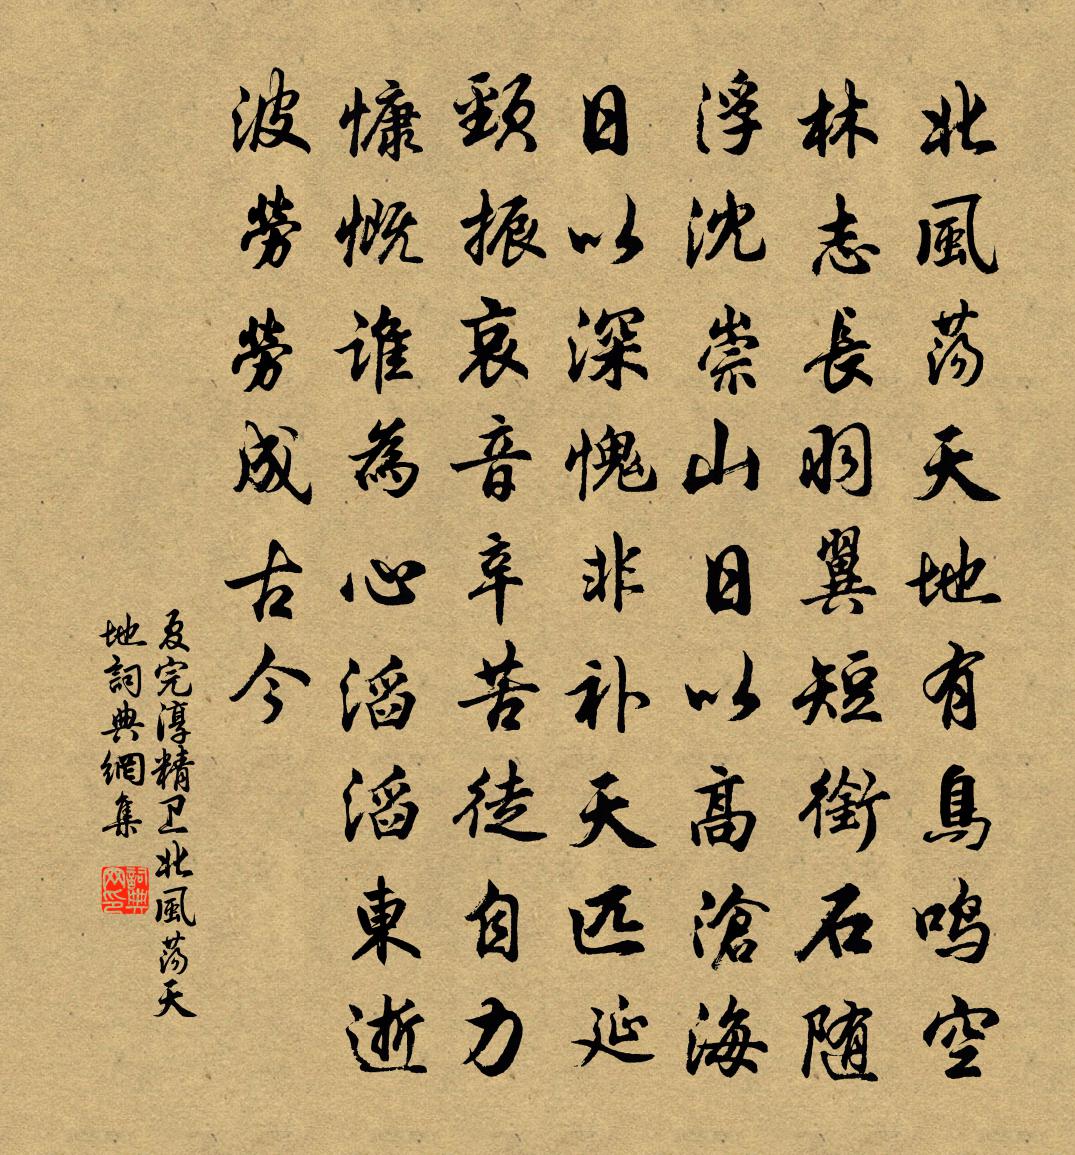 北風蕩天地有鳥鳴空
林志長羽翼短銜石随
浮沈崇山日以高滄海
日以深愧非补天匹延
頸振哀音辛苦徒自力
慷慨谁為心滔滔東逝
波勞勞成古今
夏完淳精卫北風蕩天
地詞典網集
詞典网印